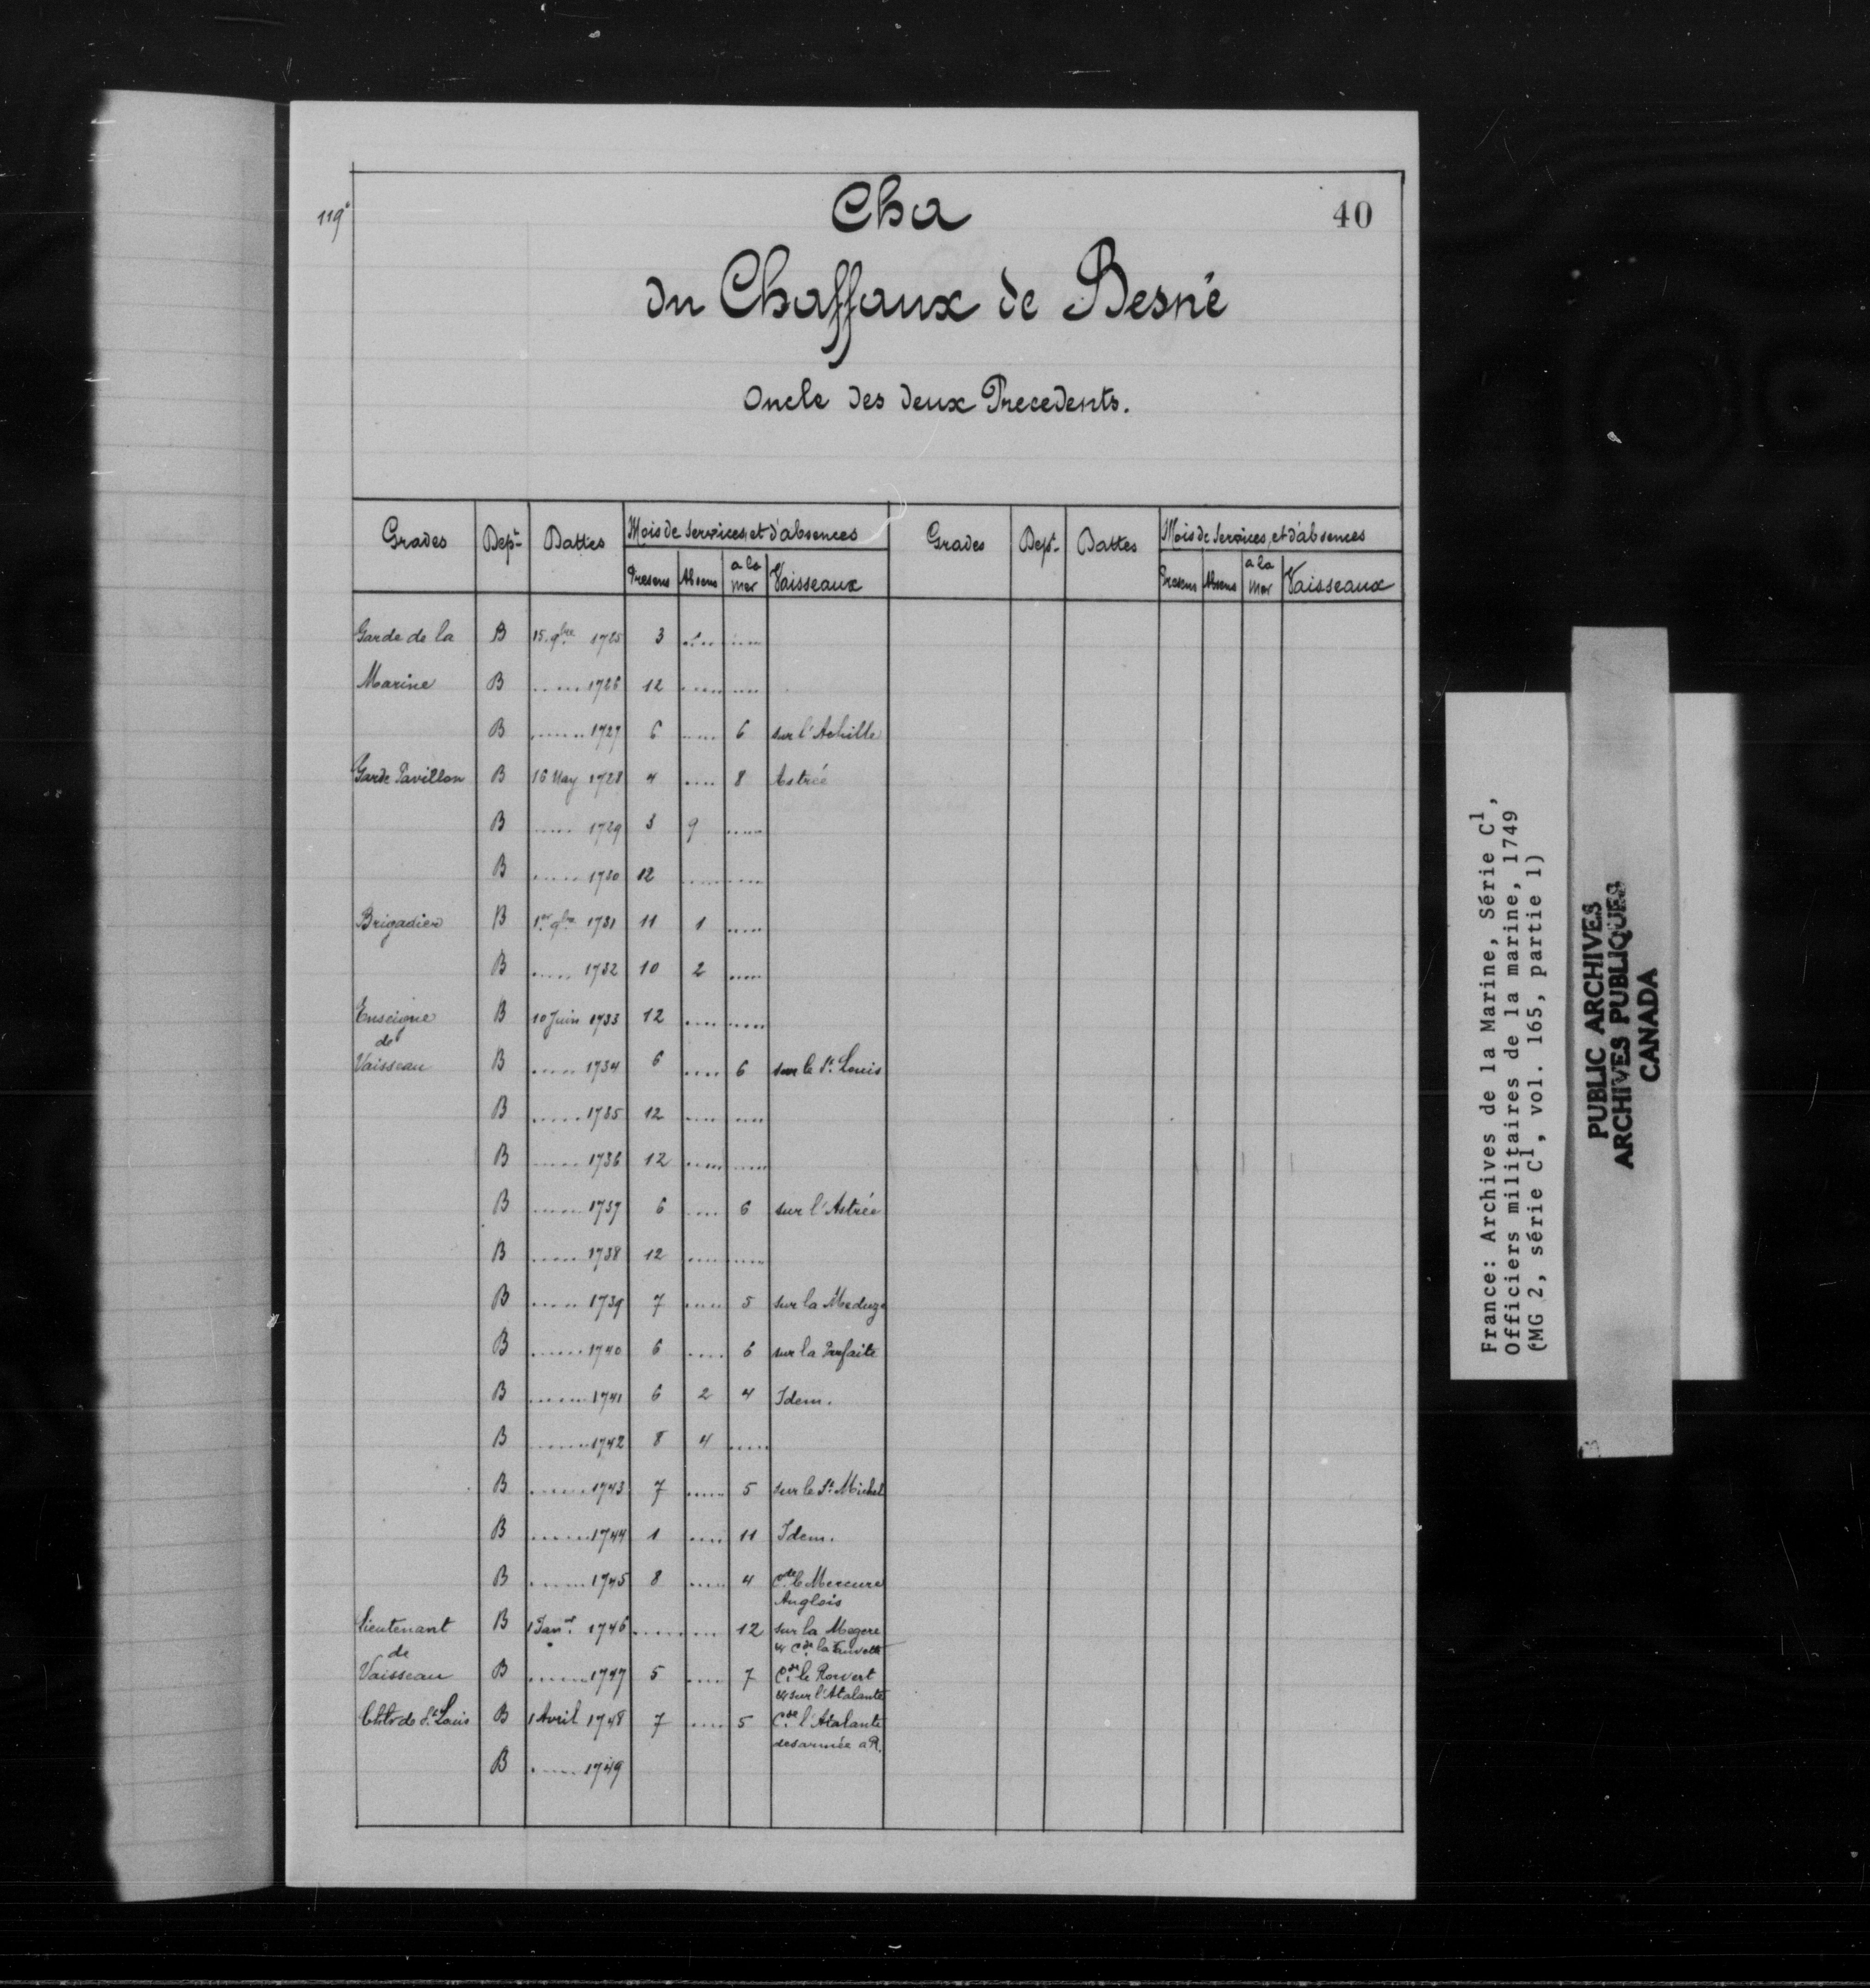 119°
40
Cha
du Chaffaux de Besné
Oncle des deux Precedents.
Grades Dept. Dattes Mois de services et d'absences Grades Dept. Dattes Mois de services et d'absences
Presens Absens a la mer Vaisseaux Presens Absens a la mer Vaisseaux
Garde de la B 15. 9bre 1725 3 .... ....
Marine B ...... 1726 12 ..... ....
B ....... 1727 6 ..... 6 sur l'Achille
Garde Pavillon B 16 May 1728 4 .... 8 Astrée
B ...... 1729 3 9 .....
B ...... 1730 12 ..... ....
Brigadier B 1er 9bre 1731 11 1 .....
B ..... 1732 10 2 ....
Enseigne B 10 Juin 1733 12 .... .....
de
Vaisseau B ..... 1734 6 .... 6 sur le St. Louis
B ..... 1735 12 .... ....
B ...... 1736 12 ..... .....
B ...... 1737 6 .... 6 sur l'Astrée
B ..... 1738 12 ..... ....
B ...... 1739 7 ..... 5 sur la Meduze
B ....... 1740 6 ..... 6 sur la Parfaite
B ....... 1741 6 2 4 Idem.
B ........ 1742 8 4 .....
B ....... 1743 7 ..... 5 sur le St. Michel
B ........ 1744 1 .... 11 Idem.
B ........ 1745 8 ..... 4 Cde le Mercure
Anglois
Lieutenant B 1 Janer. 1746 ..... .... 12 sur la Megere
de
Vaisseau B ....... 1747 5 .... 7 Cde le Rouvert
& sur l'Atalante
Chlr de St. Louis B 1 Avril 1748 7 .... 5 Cde l'Atalante
desarmée a R.
B ...... 1749
France: Archives de la Marine, Série C1,
Officiers militaires de la marine, 1749
(MG 2, série C1, vol. 165, partie 1)
PUBLIC ARCHIVES
ARCHIVES PUBLIQUES
CANADA